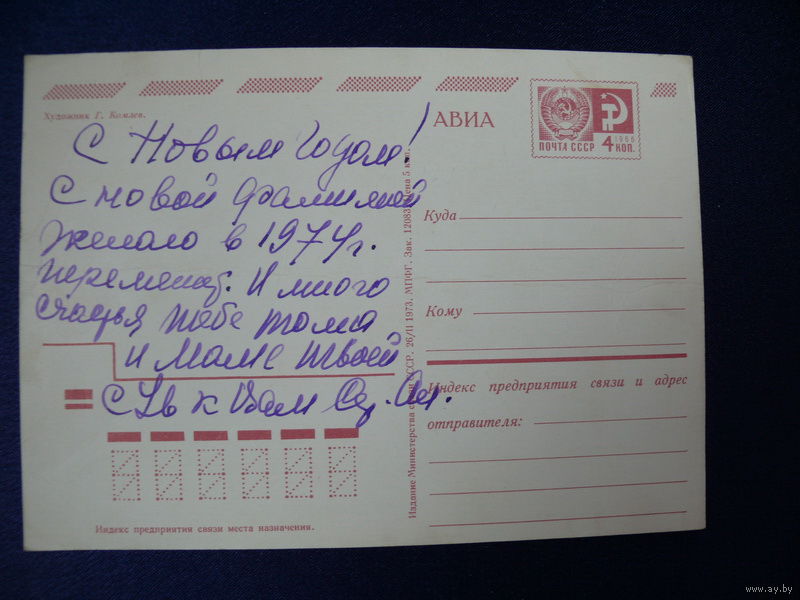 Художник Г. Комлев.
С Новым Годом!
С новой фамилией
желаю в 1974г.
перемены. И много
счастья тебе Тома
и Маме твоей
с Ув к Вам
Индекс предприятия связи места назначения.
Издание Министерства связи СССР. 26/II 1973. МПФГ. Зак. 12083. Цена 5 коп.
АВИА
ПОЧТА СССР
1966
4 КОП.
Куда
Кому
Индекс предприятия связи и адрес
отправителя:
www.ay.by